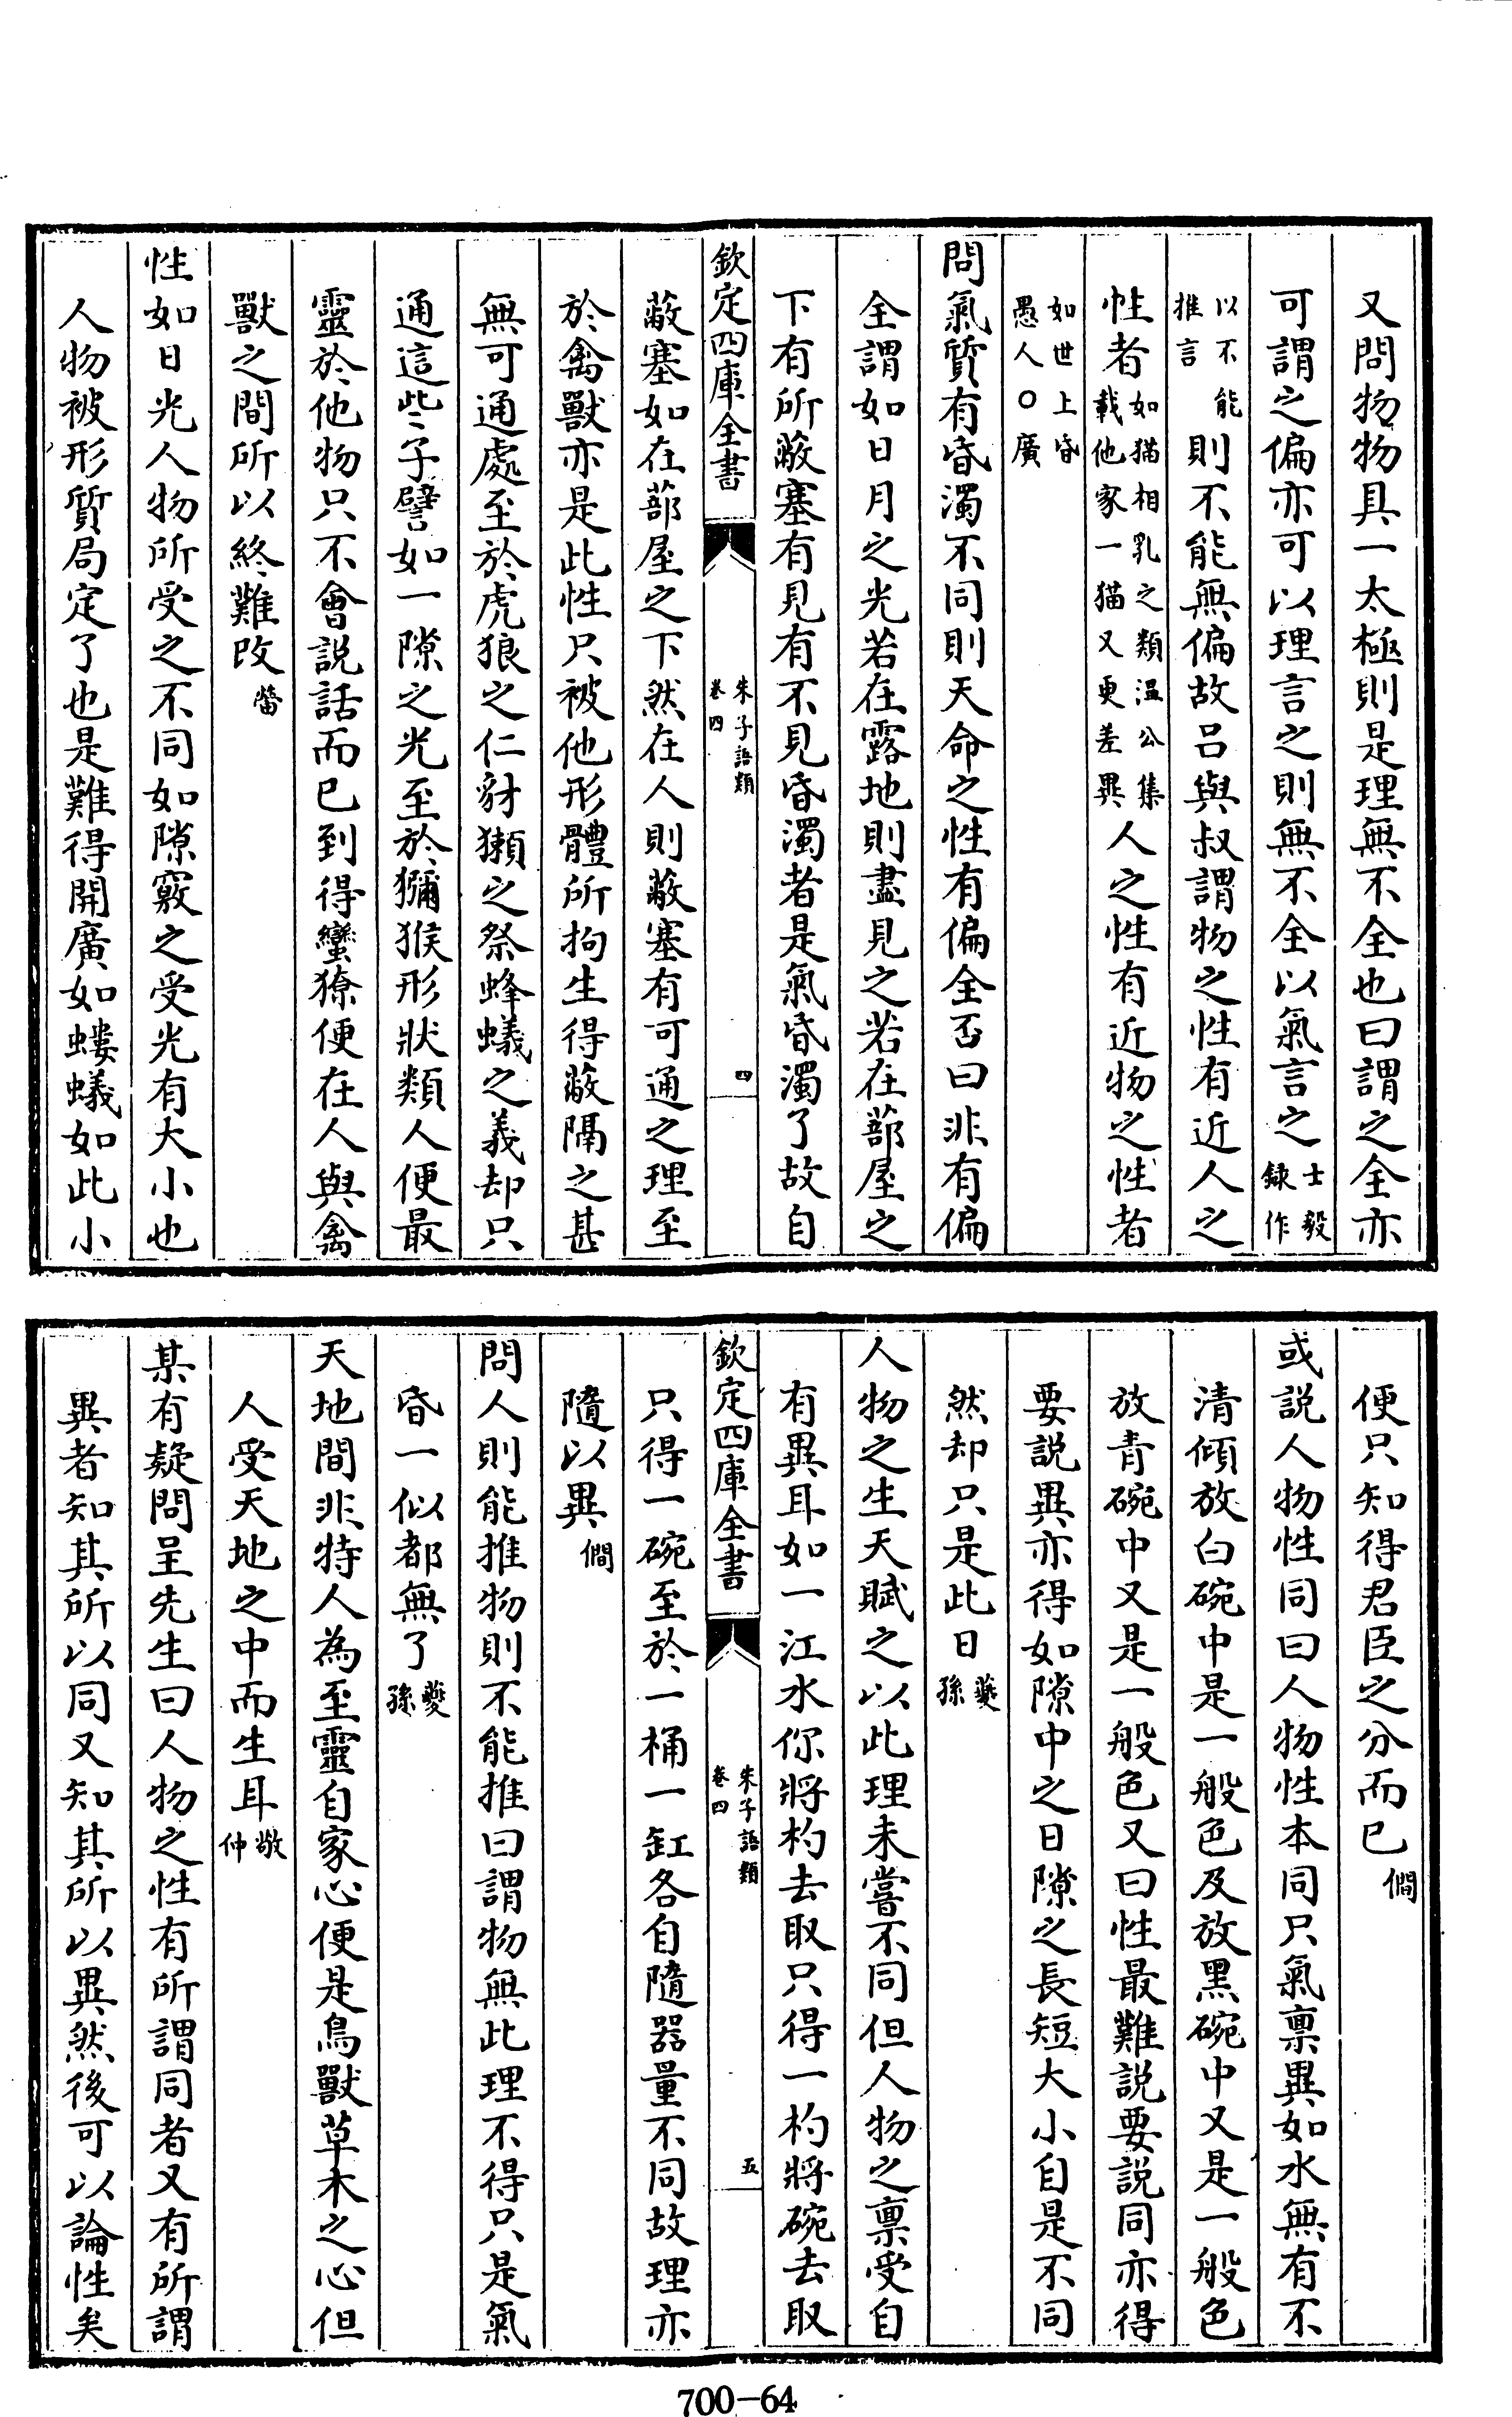 又問物物具一太極則是理無不全也曰謂之全亦
可謂之偏亦可以理言之則無不全以氣言之士毅錄作
以不能推言則不能無偏故呂與叔謂物之性有近人之
性者如猫相乳之類溫公集載他家一猫又更差異人之性有近物之性者
如世上昏愚人〇廣
問氣質有昏濁不同則天命之性有偏全否曰非有偏
全謂如日月之光若在露地則盡見之若在蔀屋之
下有所蔽塞有見有不見昏濁者是氣昏濁了故自
欽定四庫全書
朱子語類
卷四
四
蔽塞如在蔀屋之下然在人則蔽塞有可通之理至
於禽獸亦是此性只被他形體所拘生得蔽隔之甚
無可通處至於虎狼之仁豺獺之祭蜂蟻之義却只
通這些子譬如一隙之光至於獼猴形狀類人便最
靈於他物只不會説話而已到得蠻獠便在人與禽
獸之間所以終難改㽦
性如日光人物所受之不同如隙竅之受光有大小也
人物被形質局定了也是難得開廣如螻蟻如此小
便只知得君臣之分而已僩
或説人物性同曰人物性本同只氣禀異如水無有不
清傾放白碗中是一般色及放黒碗中又是一般色
放青碗中又是一般色又曰性最難説要説同亦得
要説異亦得如隙中之日隙之長短大小自是不同
然却只是此日夔孫
人物之生天賦之以此理未嘗不同但人物之禀受自
有異耳如一江水你將杓去取只得一杓將碗去取
欽定四庫全書
朱子語類
卷四
五
只得一碗至於一桶一缸各自隨器量不同故理亦
隨以異僩
問人則能推物則不能推曰謂物無此理不得只是氣
昏一似都無了夔孫
天地間非特人為至靈自家心便是鳥獸草木之心但
人受天地之中而生耳敬仲
某有疑問呈先生曰人物之性有所謂同者又有所謂
異者知其所以同又知其所以異然後可以論性矣
700-64